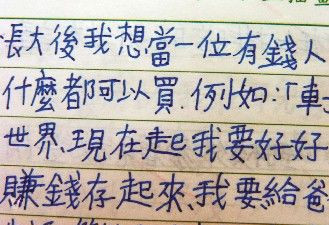 長大後我想當一位有錢人
什麼都可以買.例如:「車
世界、現在起我要好好
賺錢存起來、我要給爸